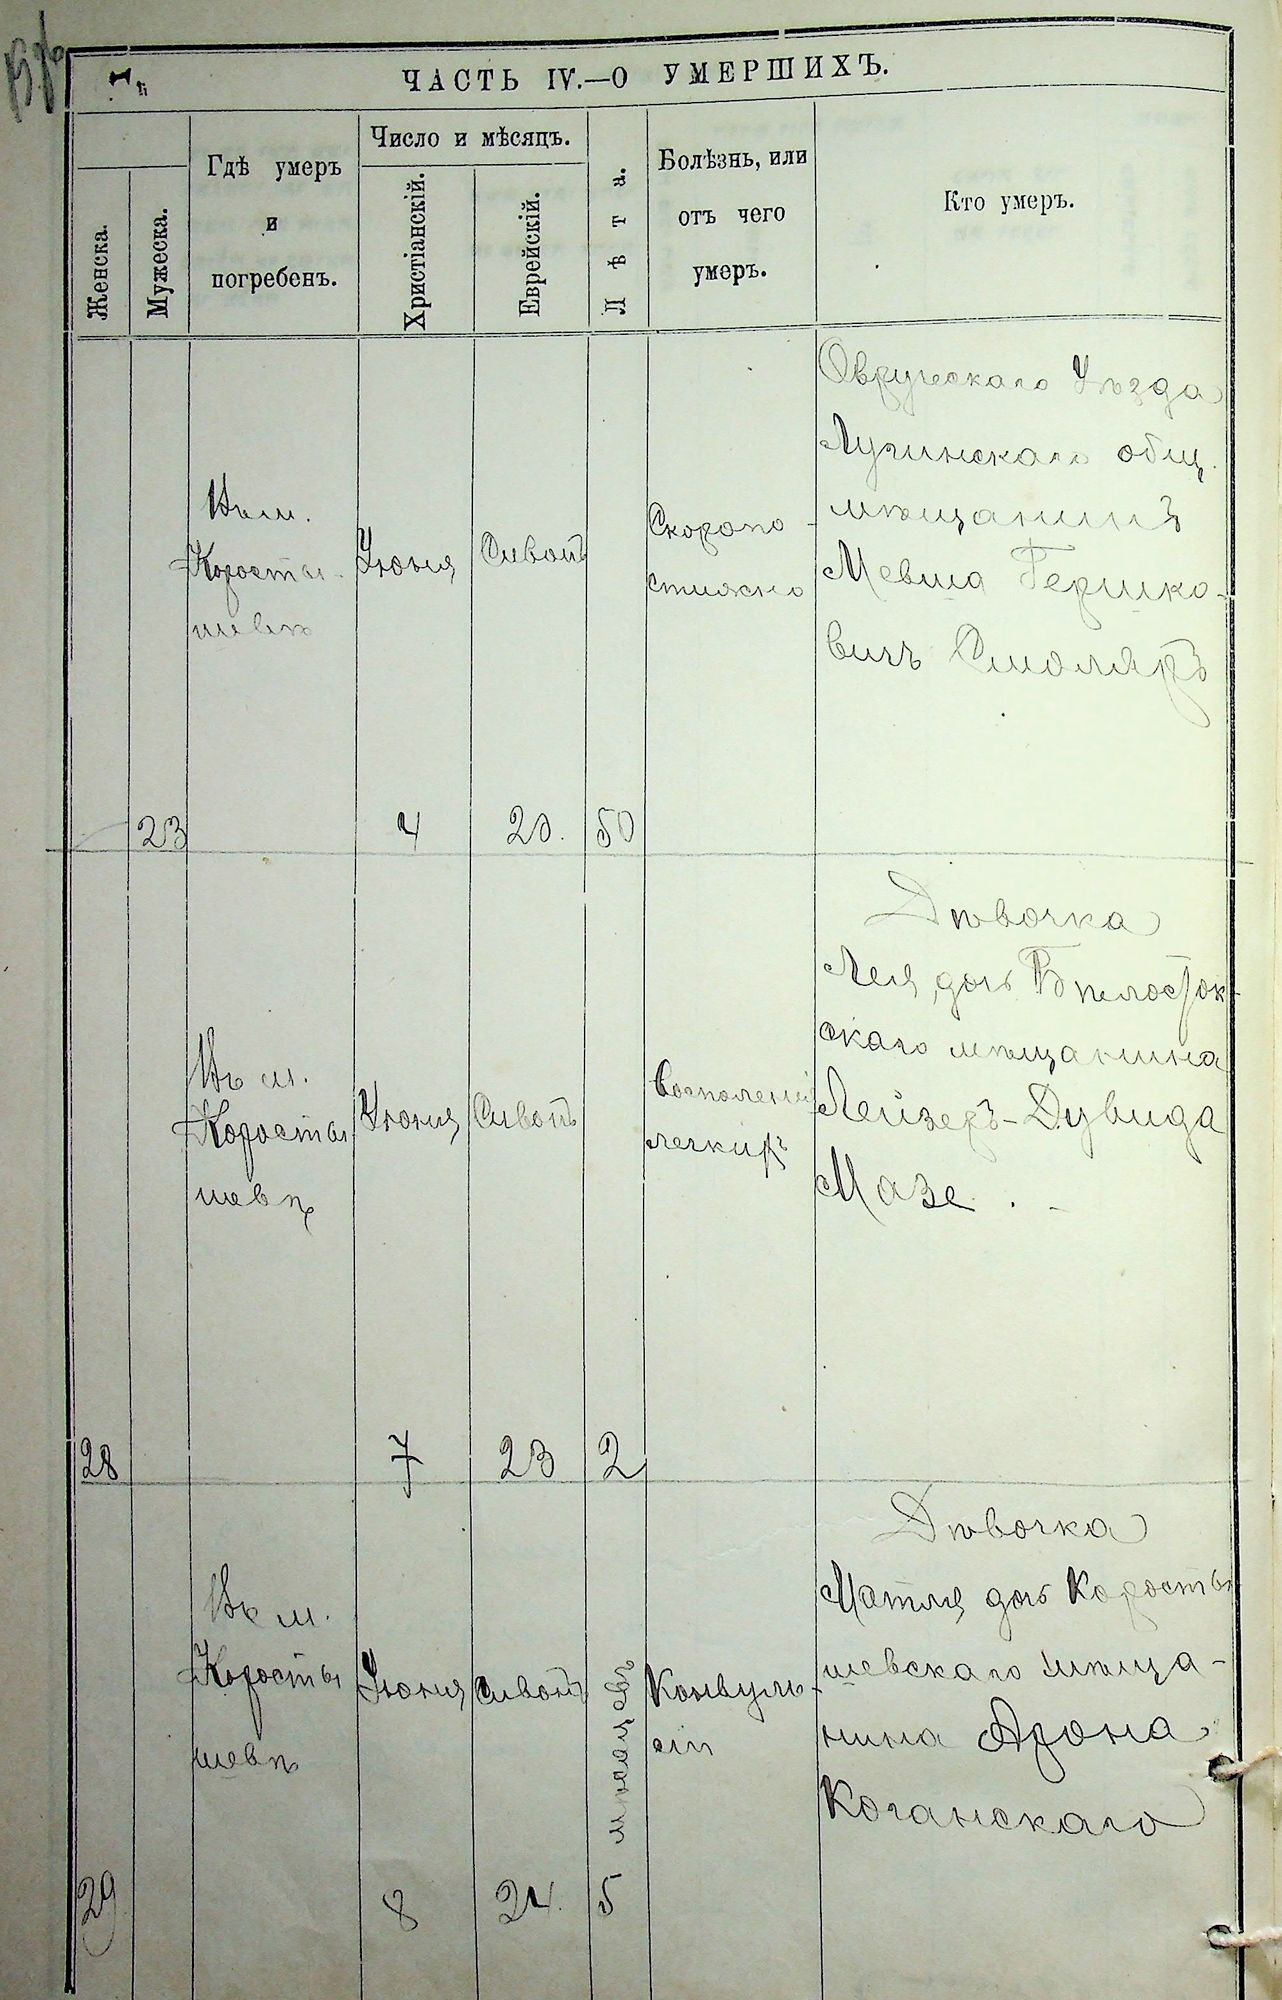 ЧАСТЬ IV.—О УМЕРШИХЪ.
Женска.
Мужеска.
Гдѣ умеръ
и
погребенъ.
Число и мѣсяцъ.
Христіанскій.
Еврейскій.
Лѣта.
Болѣзнь, или
отъ чего
умеръ.
Кто умеръ.
23
Въ м.
Коросты-
шевѣ
Іюня
4
Сивонъ
20.
50
Скоропо-
стижно
Овручскаго Уѣзда
Лугинскаго общ.
мѣщанинъ
Мевша Гершко-
вичъ Смоляръ
28
Въ м.
Коросты
шевѣ
Іюня
7
Сивонъ
23
2
Восполенія
легкихъ
Дѣвочка
Лея, дочь Бѣлосток-
скаго мѣщанина
Лейзеръ-Дувида
Мазе.
29
Въ м.
Коросты
шевѣ
Іюня
8
Сивонъ
24.
5 мѣсяцевъ
Конвуль-
сіи
Дѣвочка
Матля, дочь Коросты
шевскаго мѣща-
нина Арона
Коганскаго